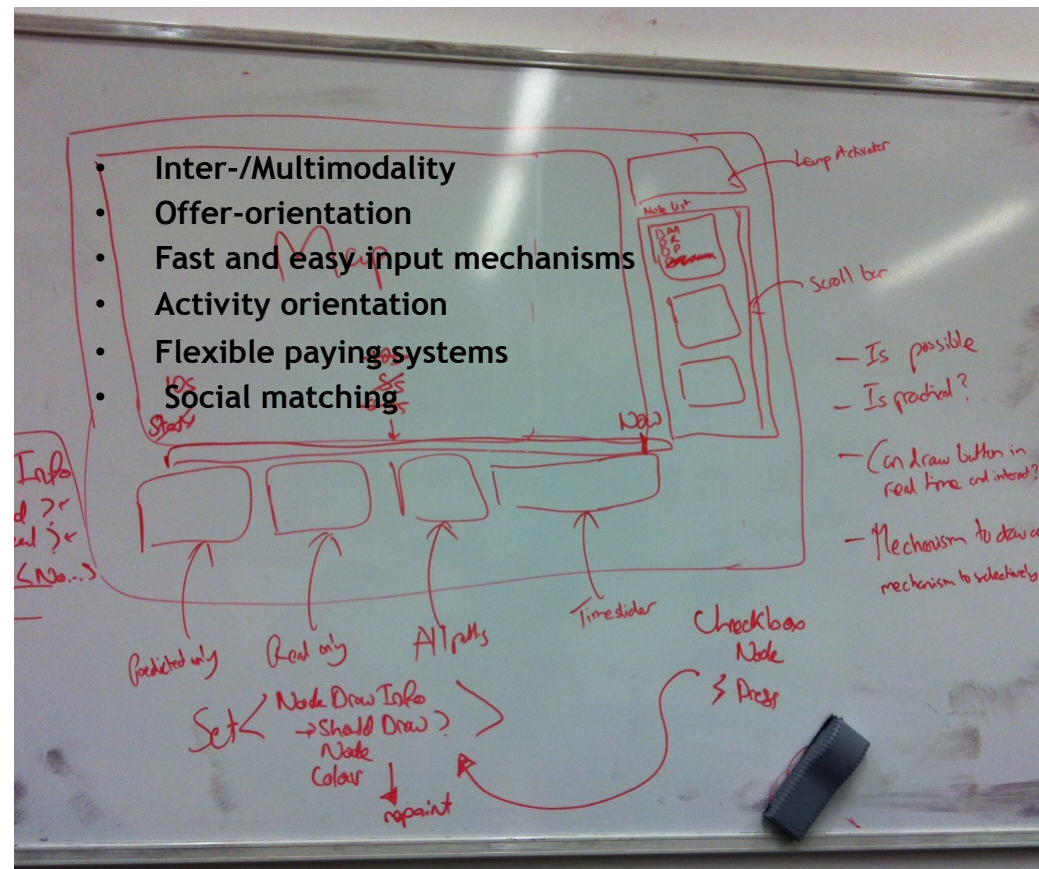 • Inter-/Multimodality
• Offer-orientation
• Fast and easy input mechanisms
• Activity orientation
• Flexible paying systems
• Social matching
Map
Lamp Activator
Node List
Scroll bar
10s
5s
Start
Now
Info
- Is possible
- Is practical?
- Can draw button in
real time and interact?
- Mechanism to draw
mechanism to selectively
Predicted only
Real only
All paths
Timeslider
Checkbox
Node
Press
Set <Node Draw Info>
→ Should Draw?
Node
Colour
repaint